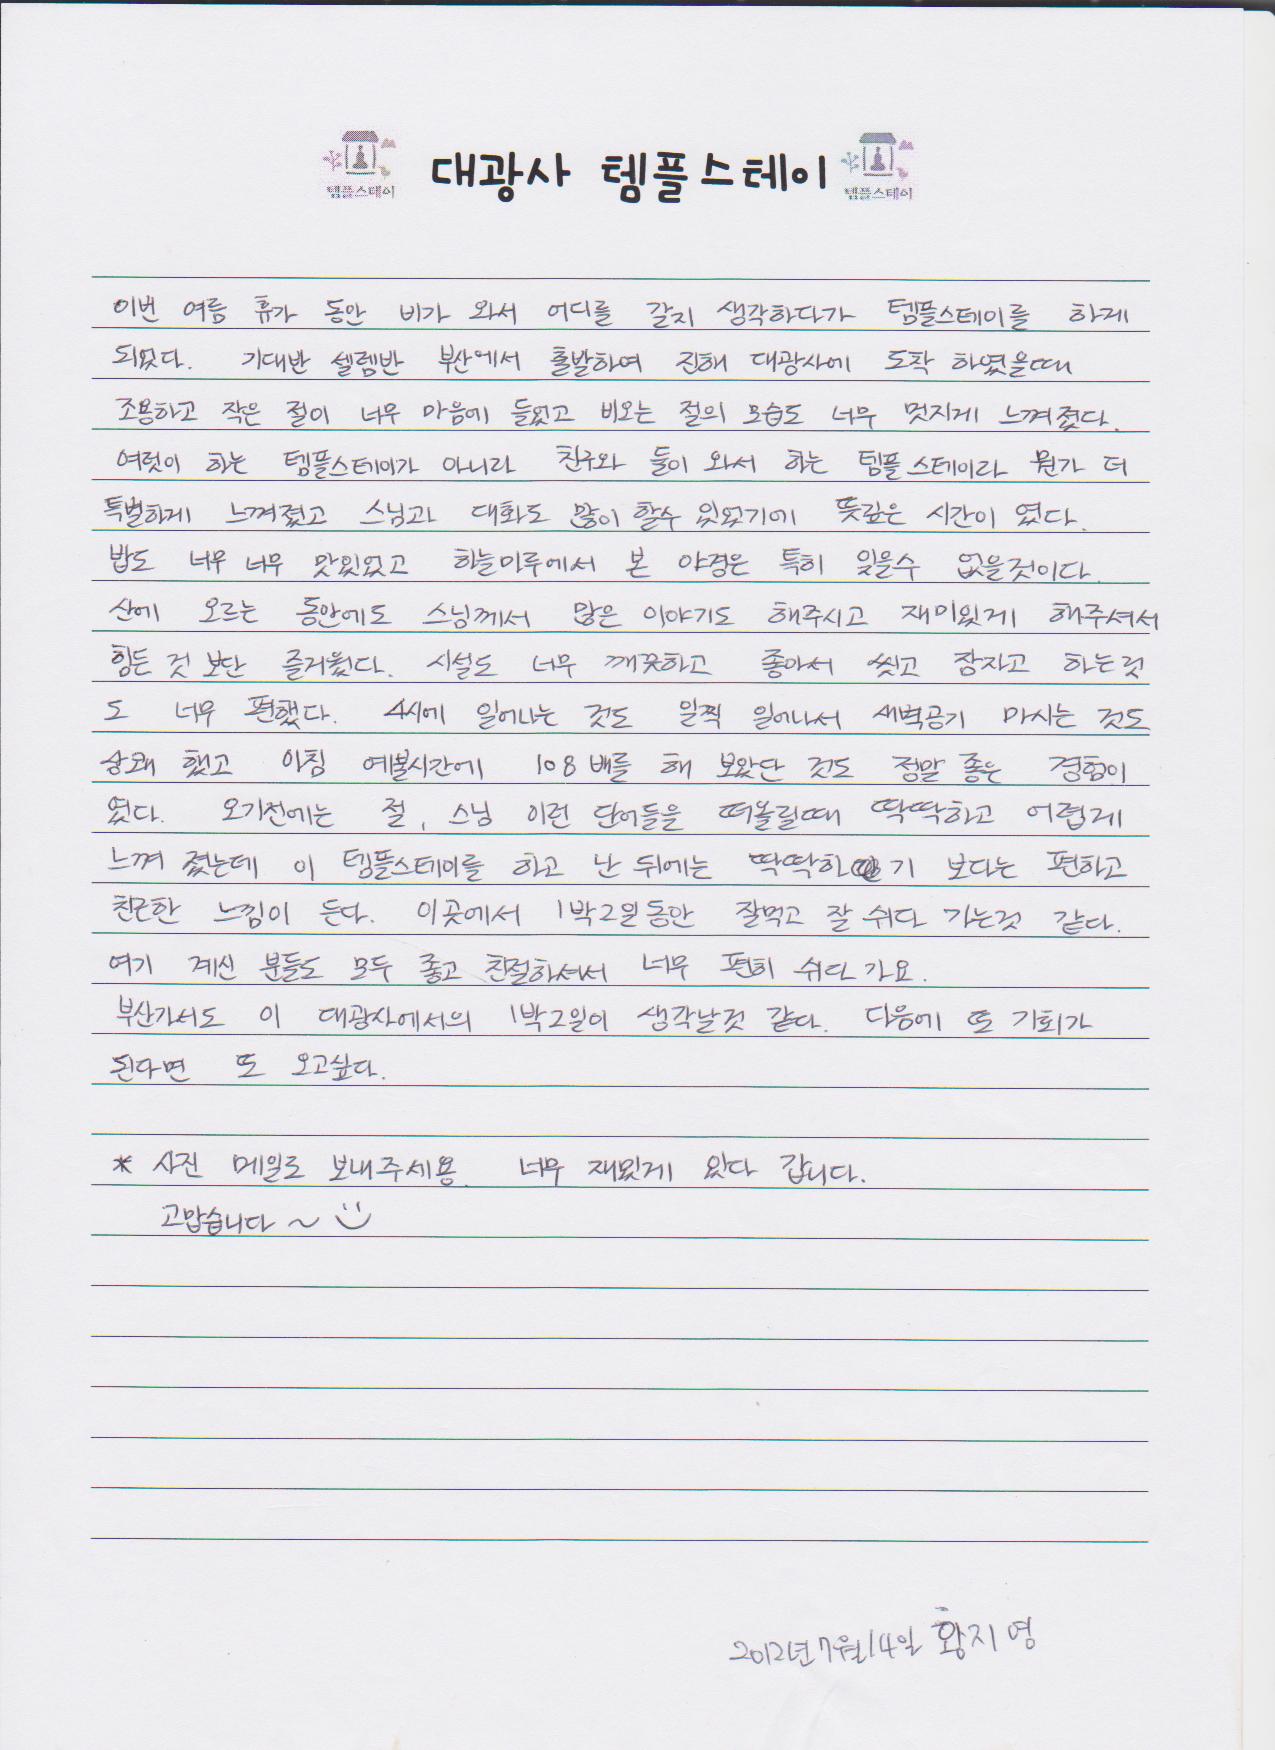 템플스테이
대광사 템플스테이
템플스테이
이번 여름 휴가 동안 비가 와서 어디를 갈지 생각하다가 템플스테이를 하게
되었다. 기대반 설렘반 부산에서 출발하여 진해 대광사에 도착 하였을때
조용하고 작은 절이 너무 마음에 들었고 비오는 절의 모습도 너무 멋지게 느껴졌다.
여럿이 하는 템플스테이가 아니라 친구와 둘이 와서 하는 템플스테이라 뭔가 더
특별하게 느껴졌고 스님과 대화도 많이 할수 있었기에 뜻깊은 시간이 였다.
밥도 너무 너무 맛있었고 하늘마루에서 본 야경은 특히 잊을수 없을것이다.
산에 오르는 동안에도 스님께서 많은 이야기도 해주시고 재미있게 해주셔서
힘든 것 보단 즐거웠다. 시설도 너무 깨끗하고 좋아서 씻고 잠자고 하는것
도 너무 편했다. 4시에 일어나는 것도 일찍 일어나서 새벽공기 마시는 것도
상쾌 했고 아침 예불시간에 108배를 해 보았단 것도 정말 좋은 경험이
였다. 오기전에는 절, 스님 이런 단어들을 떠올릴때 딱딱하고 어렵게
느껴 졌는데 이 템플스테이를 하고 난 뒤에는 딱딱하기 보다는 편하고
친근한 느낌이 든다. 이곳에서 1박2일동안 잘먹고 잘 쉬다 가는것 같다.
여기 계신 분들도 모두 좋고 친절하셔서 너무 편히 쉬다 가요.
부산가서도 이 대광사에서의 1박2일이 생각날것 같다. 다음에 또 기회가
된다면 또 오고싶다.
* 사진 메일로 보내주세용. 너무 재밌게 있다 갑니다.
고맙습니다~
2012년 7월 14일 황지영